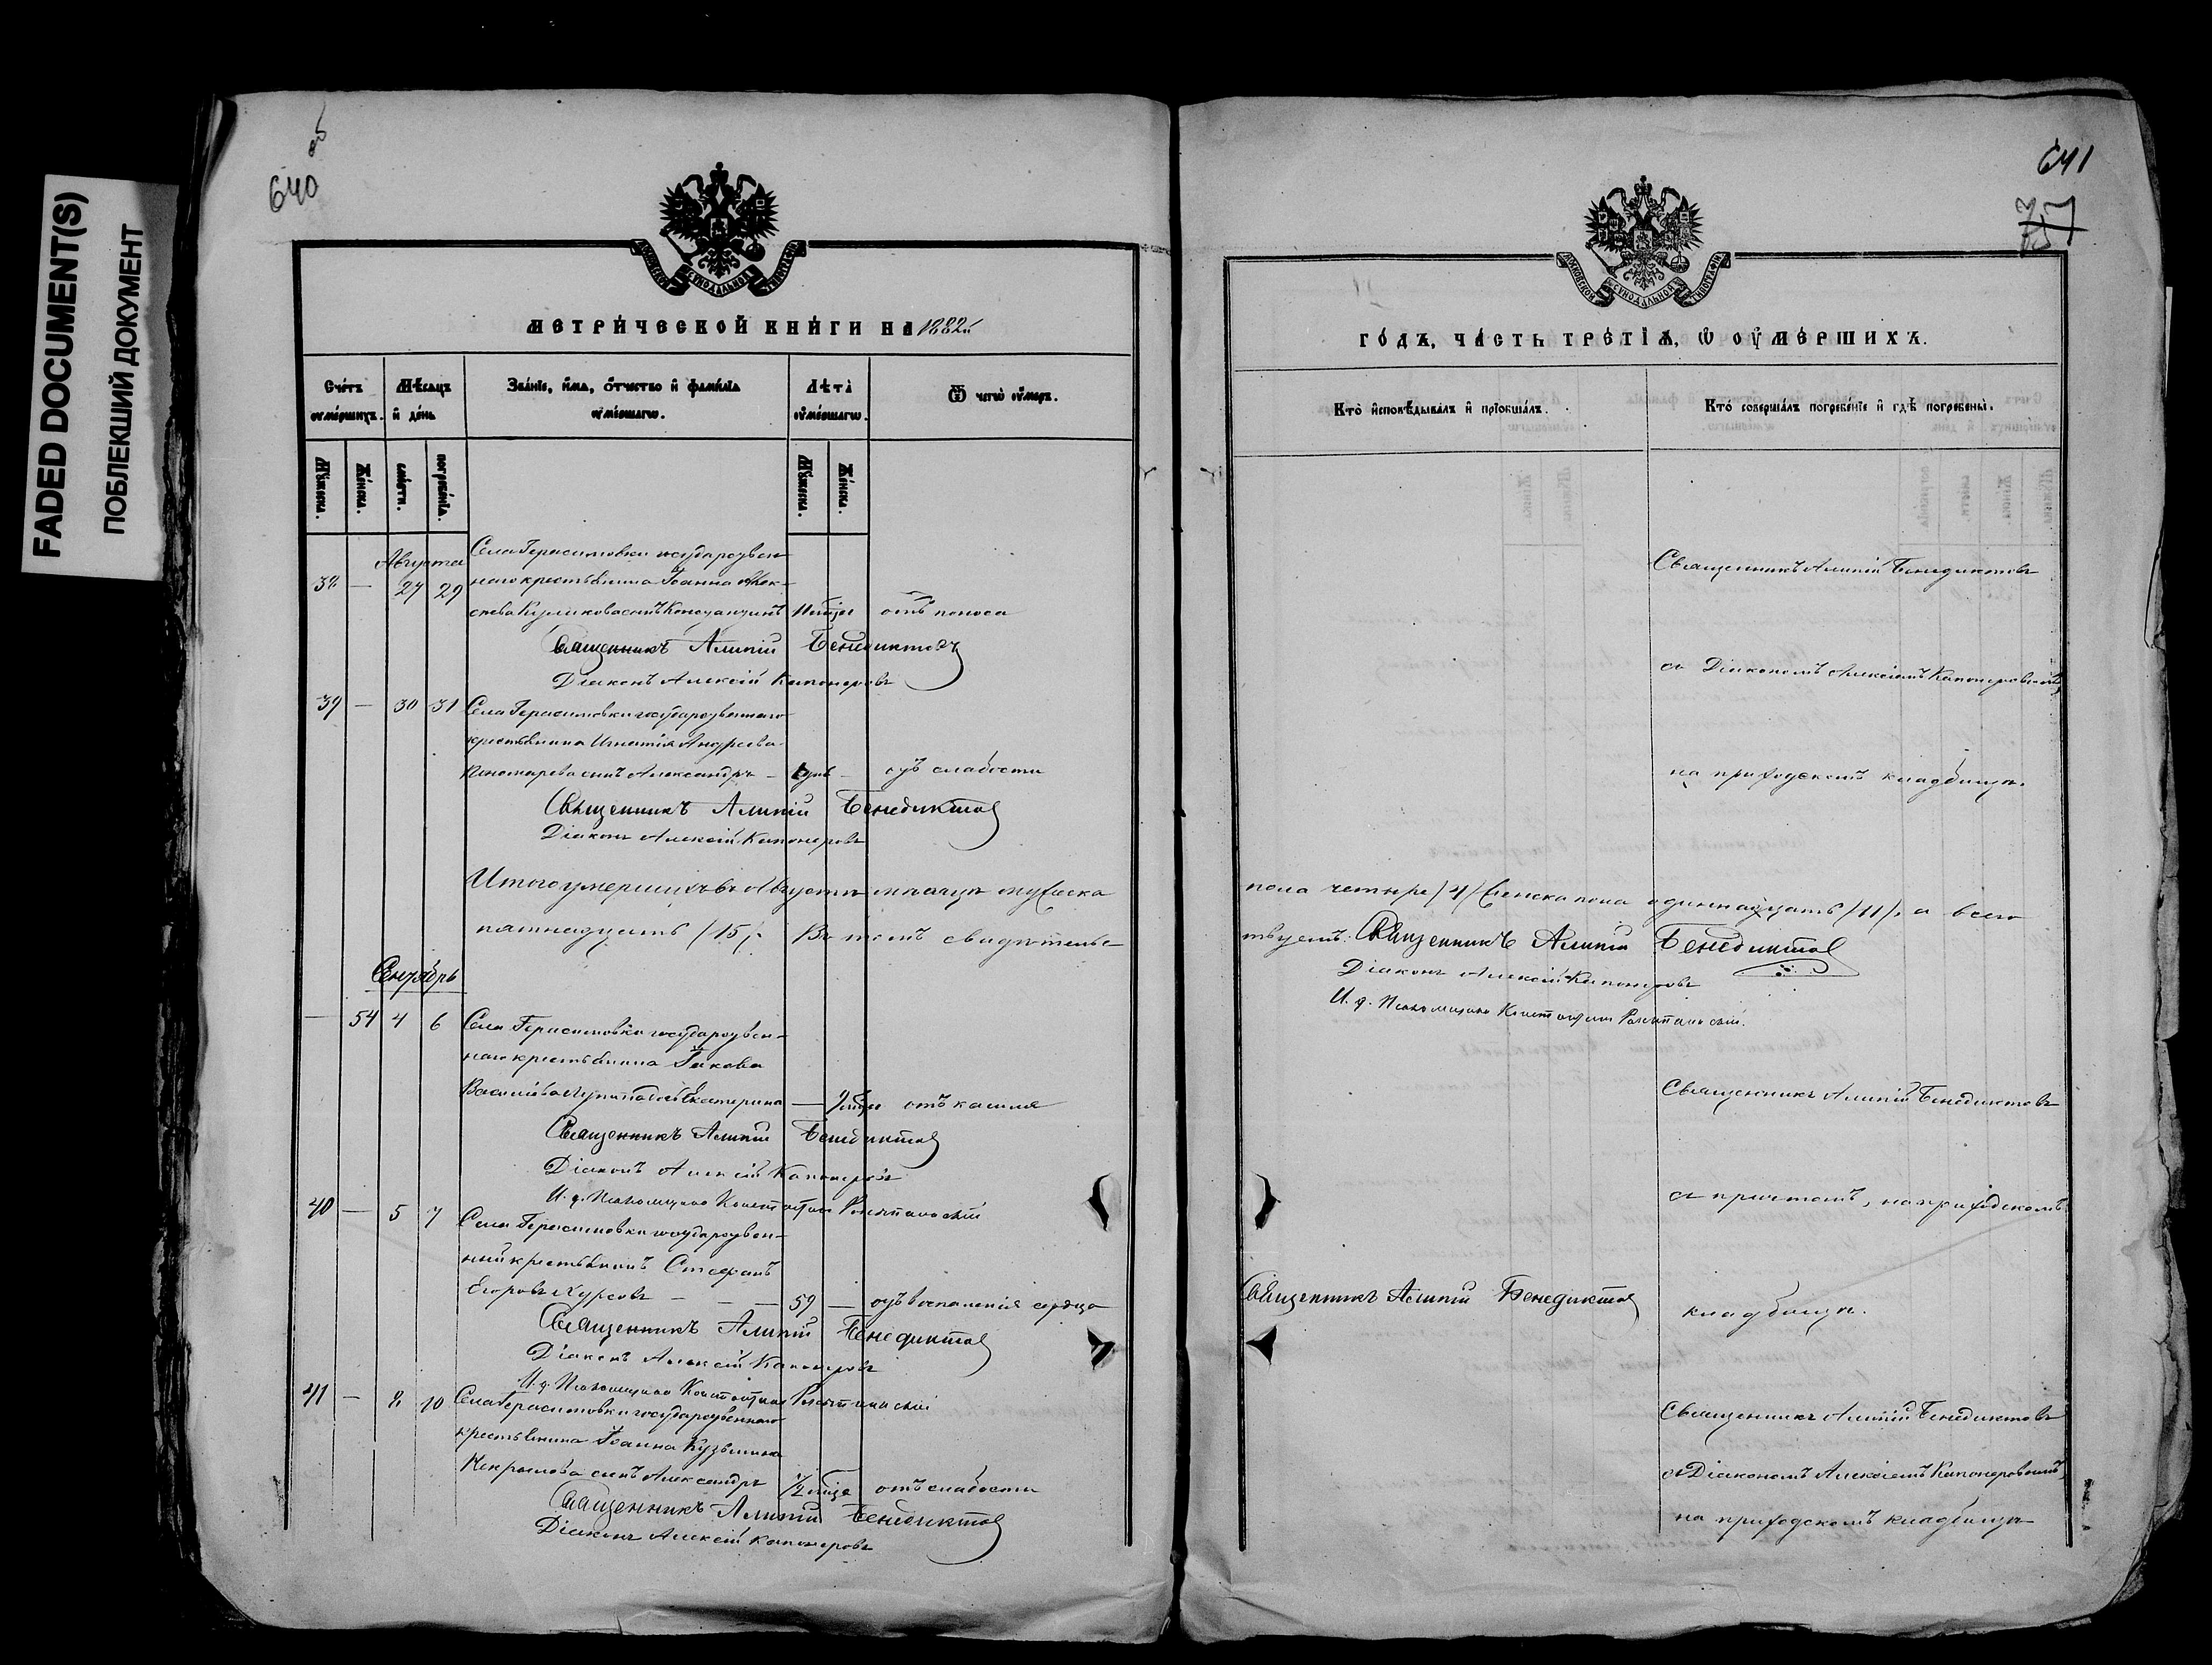 FADED DOCUMENT(S)
ПОБЛЕКШИЙ ДОКУМЕНТ
640
об
МОСКОВСКОЙ СУНОДАЛЬНОЙ ТИПОГРАФІИ
МЕТРИ́ЧЕСКОЙ КНИ́ГИ НА 1882й
Сче́тъ ᲂу҆ме́ршихъ.
Мѣ́сѧцъ и҆ де́нь
Зва́нїе, и҆́мѧ, ѻ҆́тчество и҆ фамѝлїѧ ᲂу҆ме́ршагѡ.
Лѣ́та ᲂу҆ме́ршагѡ.
Ѿ чегѡ̀ ᲂу҆́меръ.
Мꙋ́жеска.
Же́нска.
сме́рти.
погребе́нїѧ.
Мꙋ́жеска.
Же́нска.
Августа
Села Герасимовки государствен-
38 — 27 29 наго крестьянина Іоанна Алек-
сѣева Куликова сынъ Константинъ отъ поноса
Священникъ Алипій Бенедиктовъ
Діаконъ Алексій Капонеровъ
39 — 30 31 Села Герасимовки государственнаго
крестьянина Игнатія Андреева
Пономарева сынъ Александръ — отъ слабости
Священникъ Алипій Бенедиктов
Діаконъ Алексій Капонеровъ
Итого умершихъ въ Августѣ мѣсяцѣ мужеска
пятнадцать /15/. Въ томъ свидѣтельс-
Сентябрь
— 54 4 6 Села Герасимовки государствен-
наго крестьянина Іакова
Васильева дочь Екатерина — отъ кашля
Священникъ Алипій Бенедиктов
Діаконъ Алексій Капонеровъ
И. д. Псаломщика
40 — 5 7 Села Герасимовки государствен-
ный крестьянинъ Стефанъ
Егоровъ Курсовъ — — — 59 — отъ воспаленія сердца
Священникъ Алипій Бенедиктов
Діаконъ Алексій Капонеровъ
И. д. Псаломщика
41 — 8 10 Села Герасимовки государственнаго
крестьянина Іоанна Кузьмина
Некрылова сынъ Александръ отъ слабости
Священникъ Алипій Бенедиктов
Діаконъ Алексій Капонеровъ
641
МОСКОВСКОЙ СУНОДАЛЬНОЙ ТИПОГРАФІИ
ГО́ДЪ, ЧА́СТЬ ТРЕ́ТЇѦ, Ѡ҆ ОУ҆МЕ́РШИХЪ.
Кто̀ и҆сповѣ́дывалъ и҆ прїобща́лъ.
Кто̀ соверша́лъ погребе́нїе и҆ гдѣ̀ погребены̀.
Священникъ Алипій Бенедиктовъ
съ Діакономъ Алексіемъ Капонеровымъ,
на приходскомъ кладбищѣ.
пола четыре /4/ женска пола одиннадцать /11/, а всего
твуетъ: Священникъ Алипій Бенедиктов
Діаконъ Алексій Капонеровъ
И. д. Псаломщика
Священникъ Алипій Бенедиктовъ
съ причтомъ, на приходскомъ
Священникъ Алипій Бенедиктов
кладбищѣ.
Священникъ Алипій Бенедиктовъ
съ Діакономъ Алексіемъ Капонеровымъ,
на приходскомъ кладбищѣ